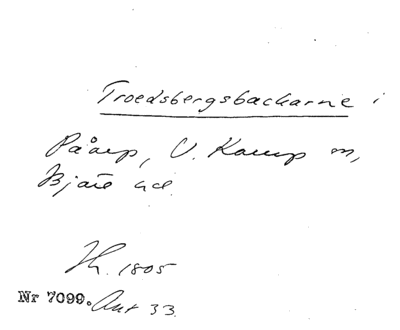 Troedsbergsbackarne i
Påarp, V. Karup sn,
Bjäre hd.
Th. 1805
Nr 7099. Ant 33.